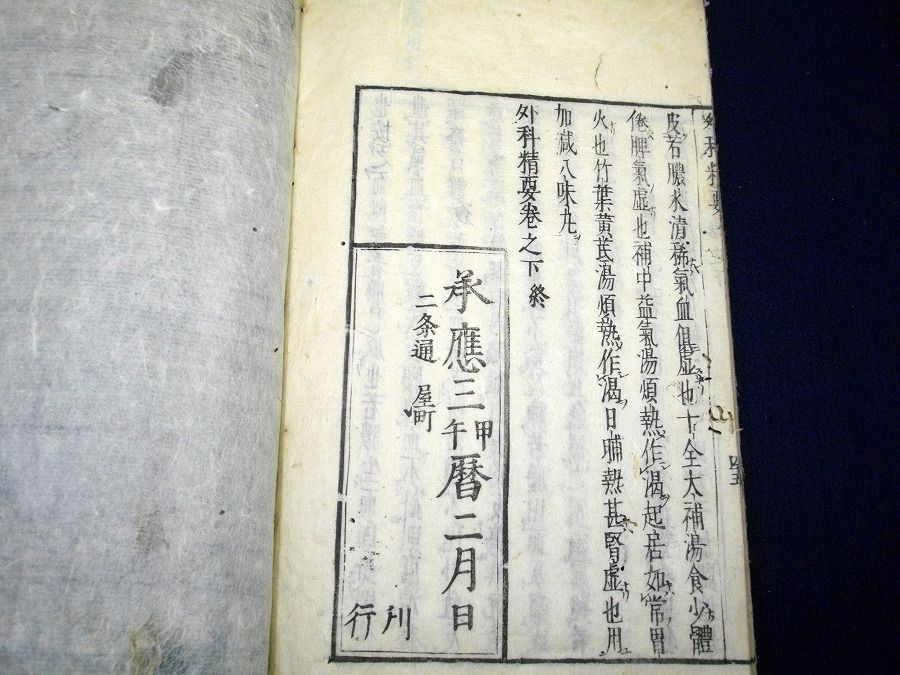 外科精要
四十五
皮若膿水清稀氣血俱虛也十全大補湯食少體
倦脾氣虛也補中益氣湯煩熱作渴起居如常胃
火也竹葉黄芪湯煩熱作渴日晡熱甚腎虛也用
加減八味丸
外科精要卷之下終
承應三甲午暦二月日
二条通 屋町
刊行